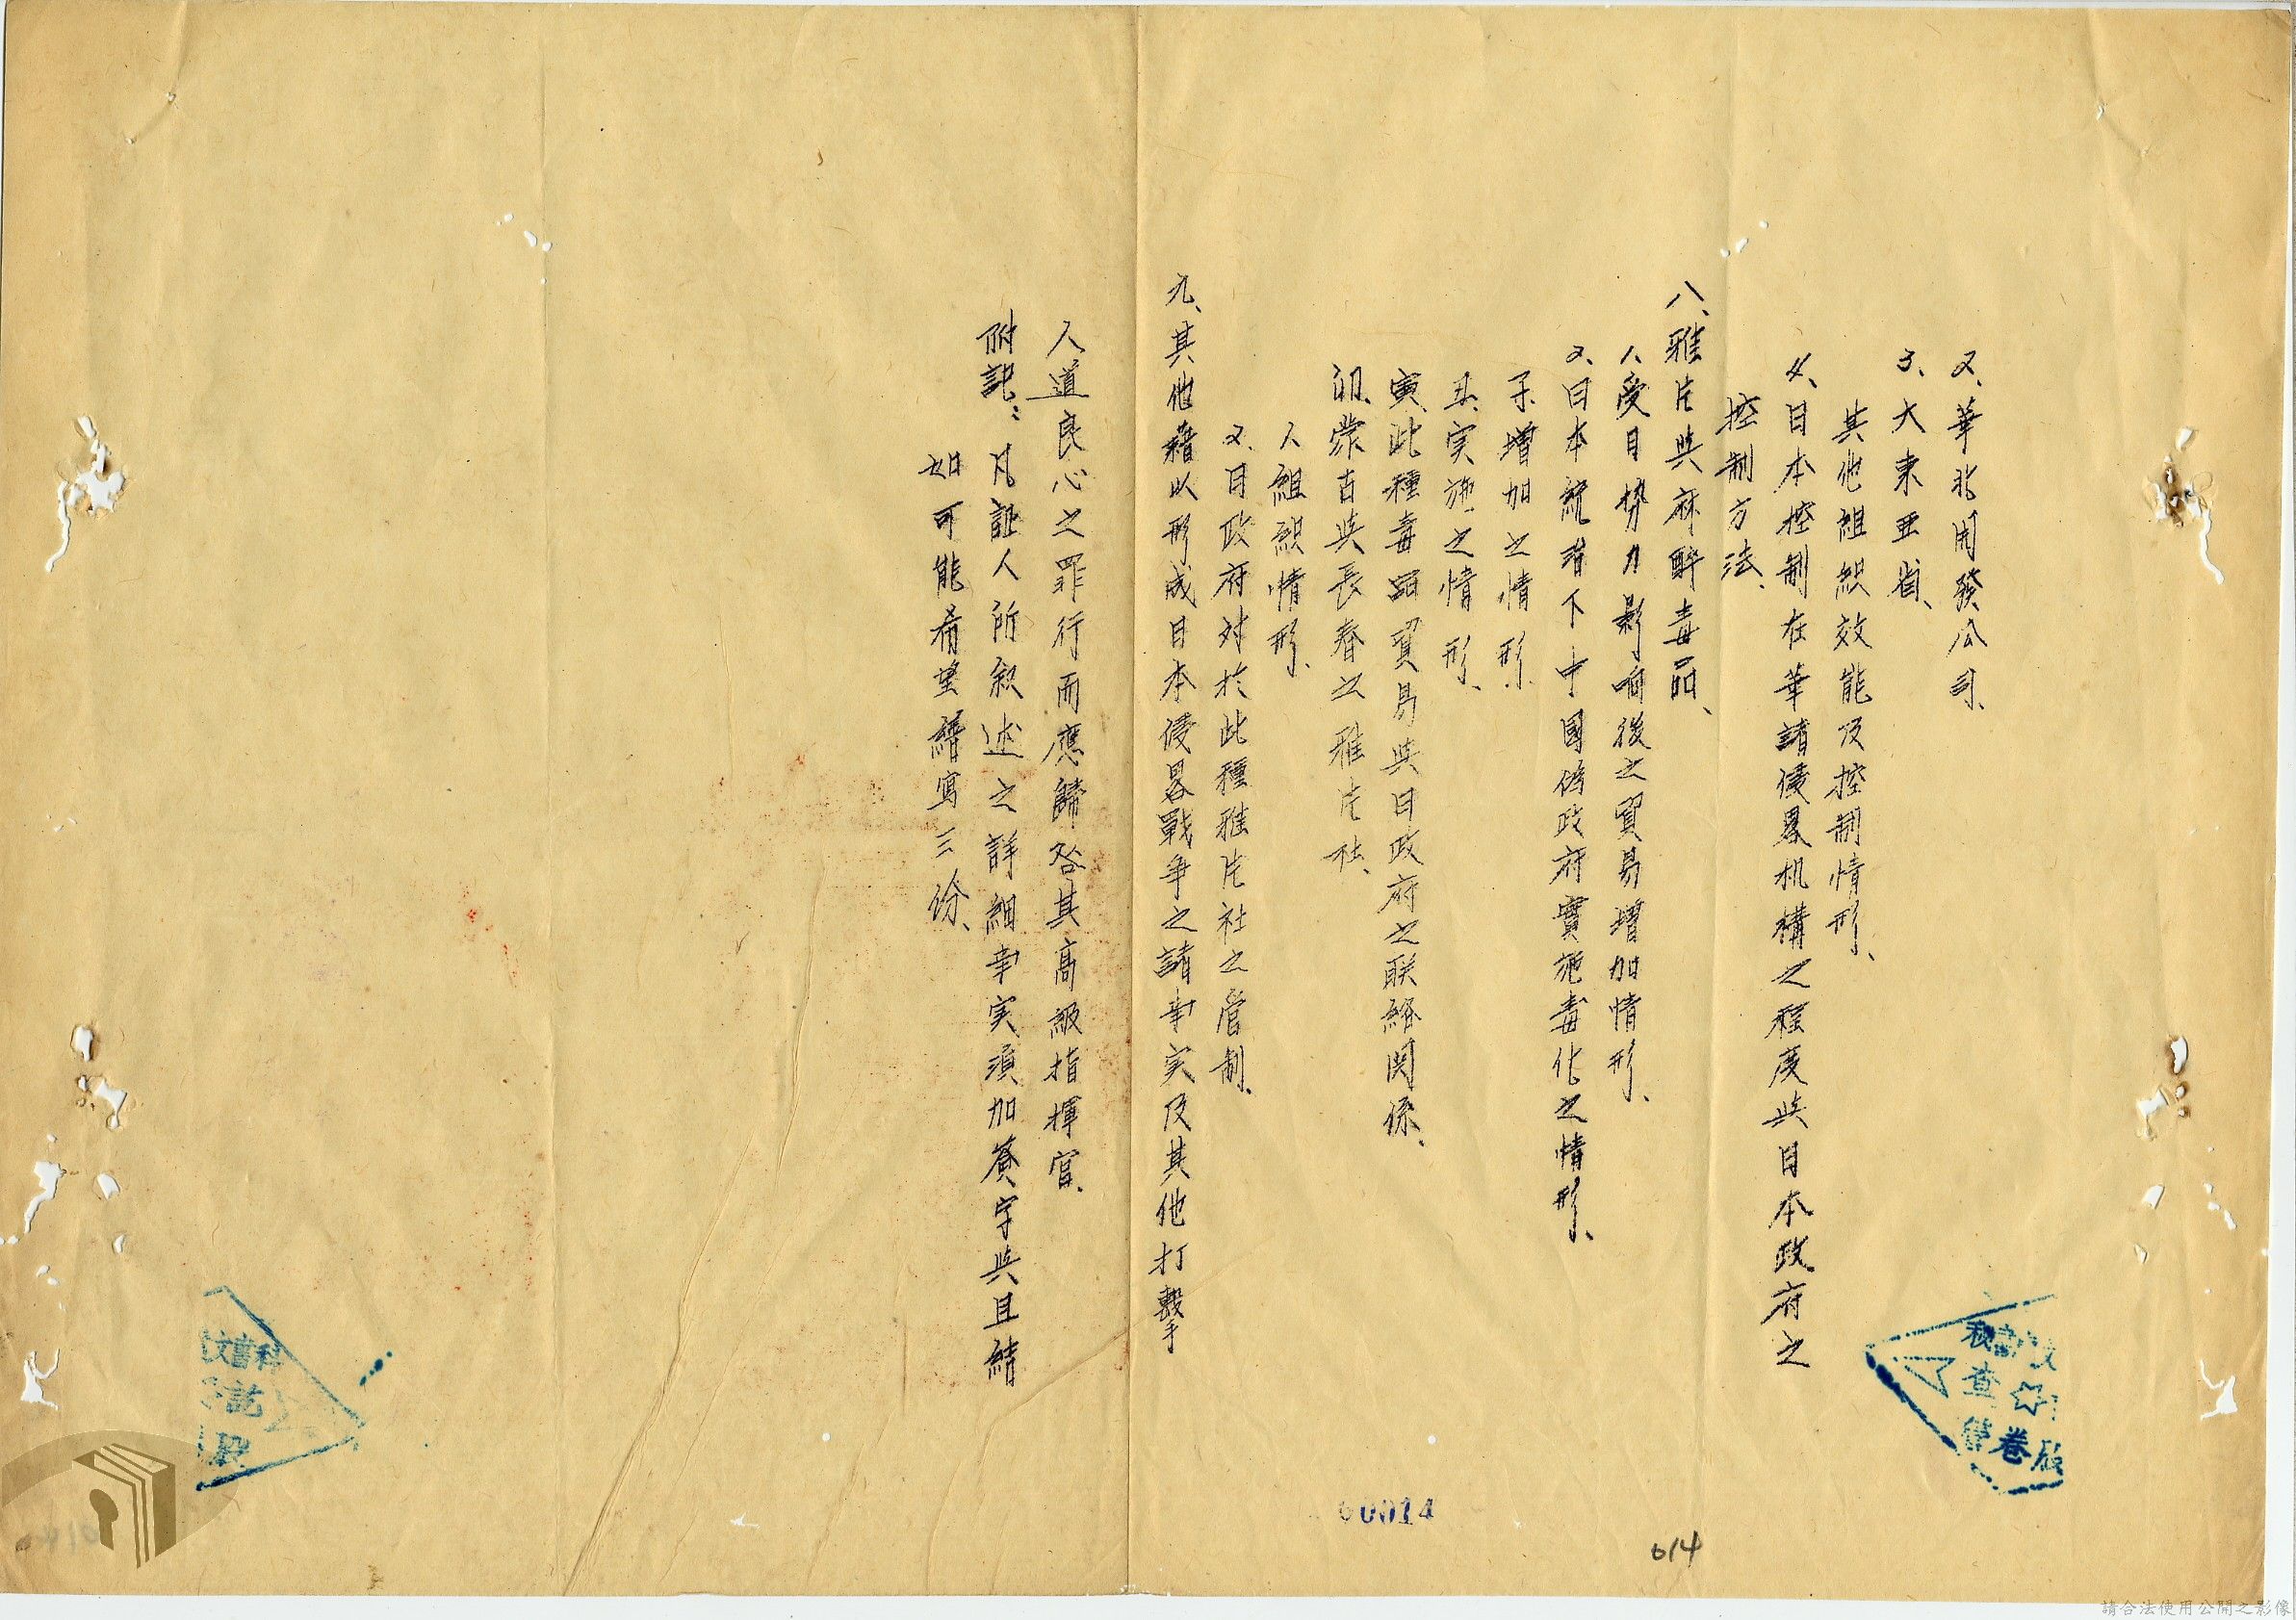 2、華北開發公司、
3、大東亜省、
其他組織效能及控制情形、
4、日本控制在華諸侵畧机構之程度與日本政府之
控制方法、
八、雅片與麻醉毒品、
1、受日势力影响後之貿易增加情形、
2、日本統治下中國偽政府實施毒化之情形、
子、增加之情形、
丑、実施之情形、
寅、此種毒品貿易與日政府之联絡関係、
卯、蒙古與長春之雅片社、
1、組織情形、
2、日政府対於此種雅片社之管制、
九、其他藉以形成日本侵畧戰争之諸事実及其他打擊
人道良心之罪行而應歸咎其高級指揮官、
附記：凡証人所叙述之詳細事実須加簽字與且結
如可能希望繕寫三份、
文書科
查
卷
00014
014
請合法使用公開之影像